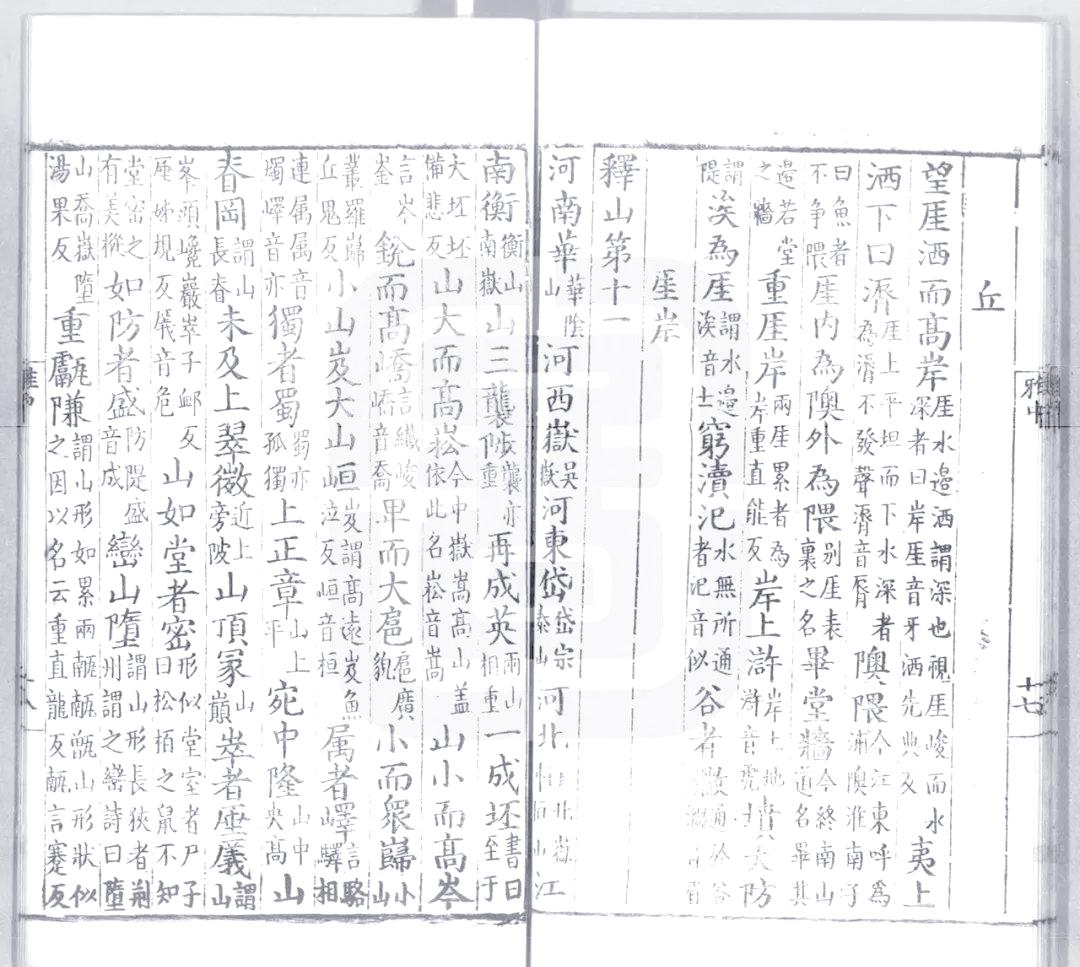 丘
望厓洒而髙岸厓水邉洒謂深也視厓峻而水深者曰岸厓音牙洒先典反夷上
洒下曰漘厓上平坦而下水深者為漘不發聲漘音脣隩隈今江東呼為浦隩淮南子
曰魚者不争隈厓内為隩外為隈别厓表裏之名畢堂牆今終南山道名畢其
邉若堂之牆重厓岸兩厓累者為岸重直能反岸上滸岸上地滸音虎墳大防
謂隄涘為厓謂水邉涘音士窮瀆汜水無所通者汜音似谷者溦通於谷
厓岸
釋山第十一
河南華華陰山河西嶽吳嶽河東岱岱宗泰山河北恒北嶽恒山江
南衡衡山南嶽山三襲陟襲亦重再成英兩山相重一成坯書曰至于
大坯坯備悲反山大而髙崧今中嶽嵩髙山盖依此名崧音嵩山小而髙岑
言岑崟銳而髙嶠言纎峻嶠音喬卑而大扈扈廣貌小而衆巋小山
叢羅巋丘鬼反小山岌大山峘岌謂髙逺岌魚泣反峘音桓属者嶧言駱驛相
連属属音燭嶧音亦獨者蜀蜀亦孤獨上正章山上平宛中隆山中央髙山
脊岡謂山長脊未及上翠微近上旁陂山頂冢山巔崒者厜㕒謂山
峯頭巉巖崒子䘏反厜姊規反㕒音危山如堂者密形似堂室者尸子曰松栢之鼠不知
堂密之有美樅如防者盛防隄盛音成巒山墮謂山形長狹者荆州謂之巒詩曰墮
山喬嶽墮湯果反重甗隒謂山形如累兩甗甗甑山形狀似之因以名云重直龍反甗言蹇反
雅中
十七